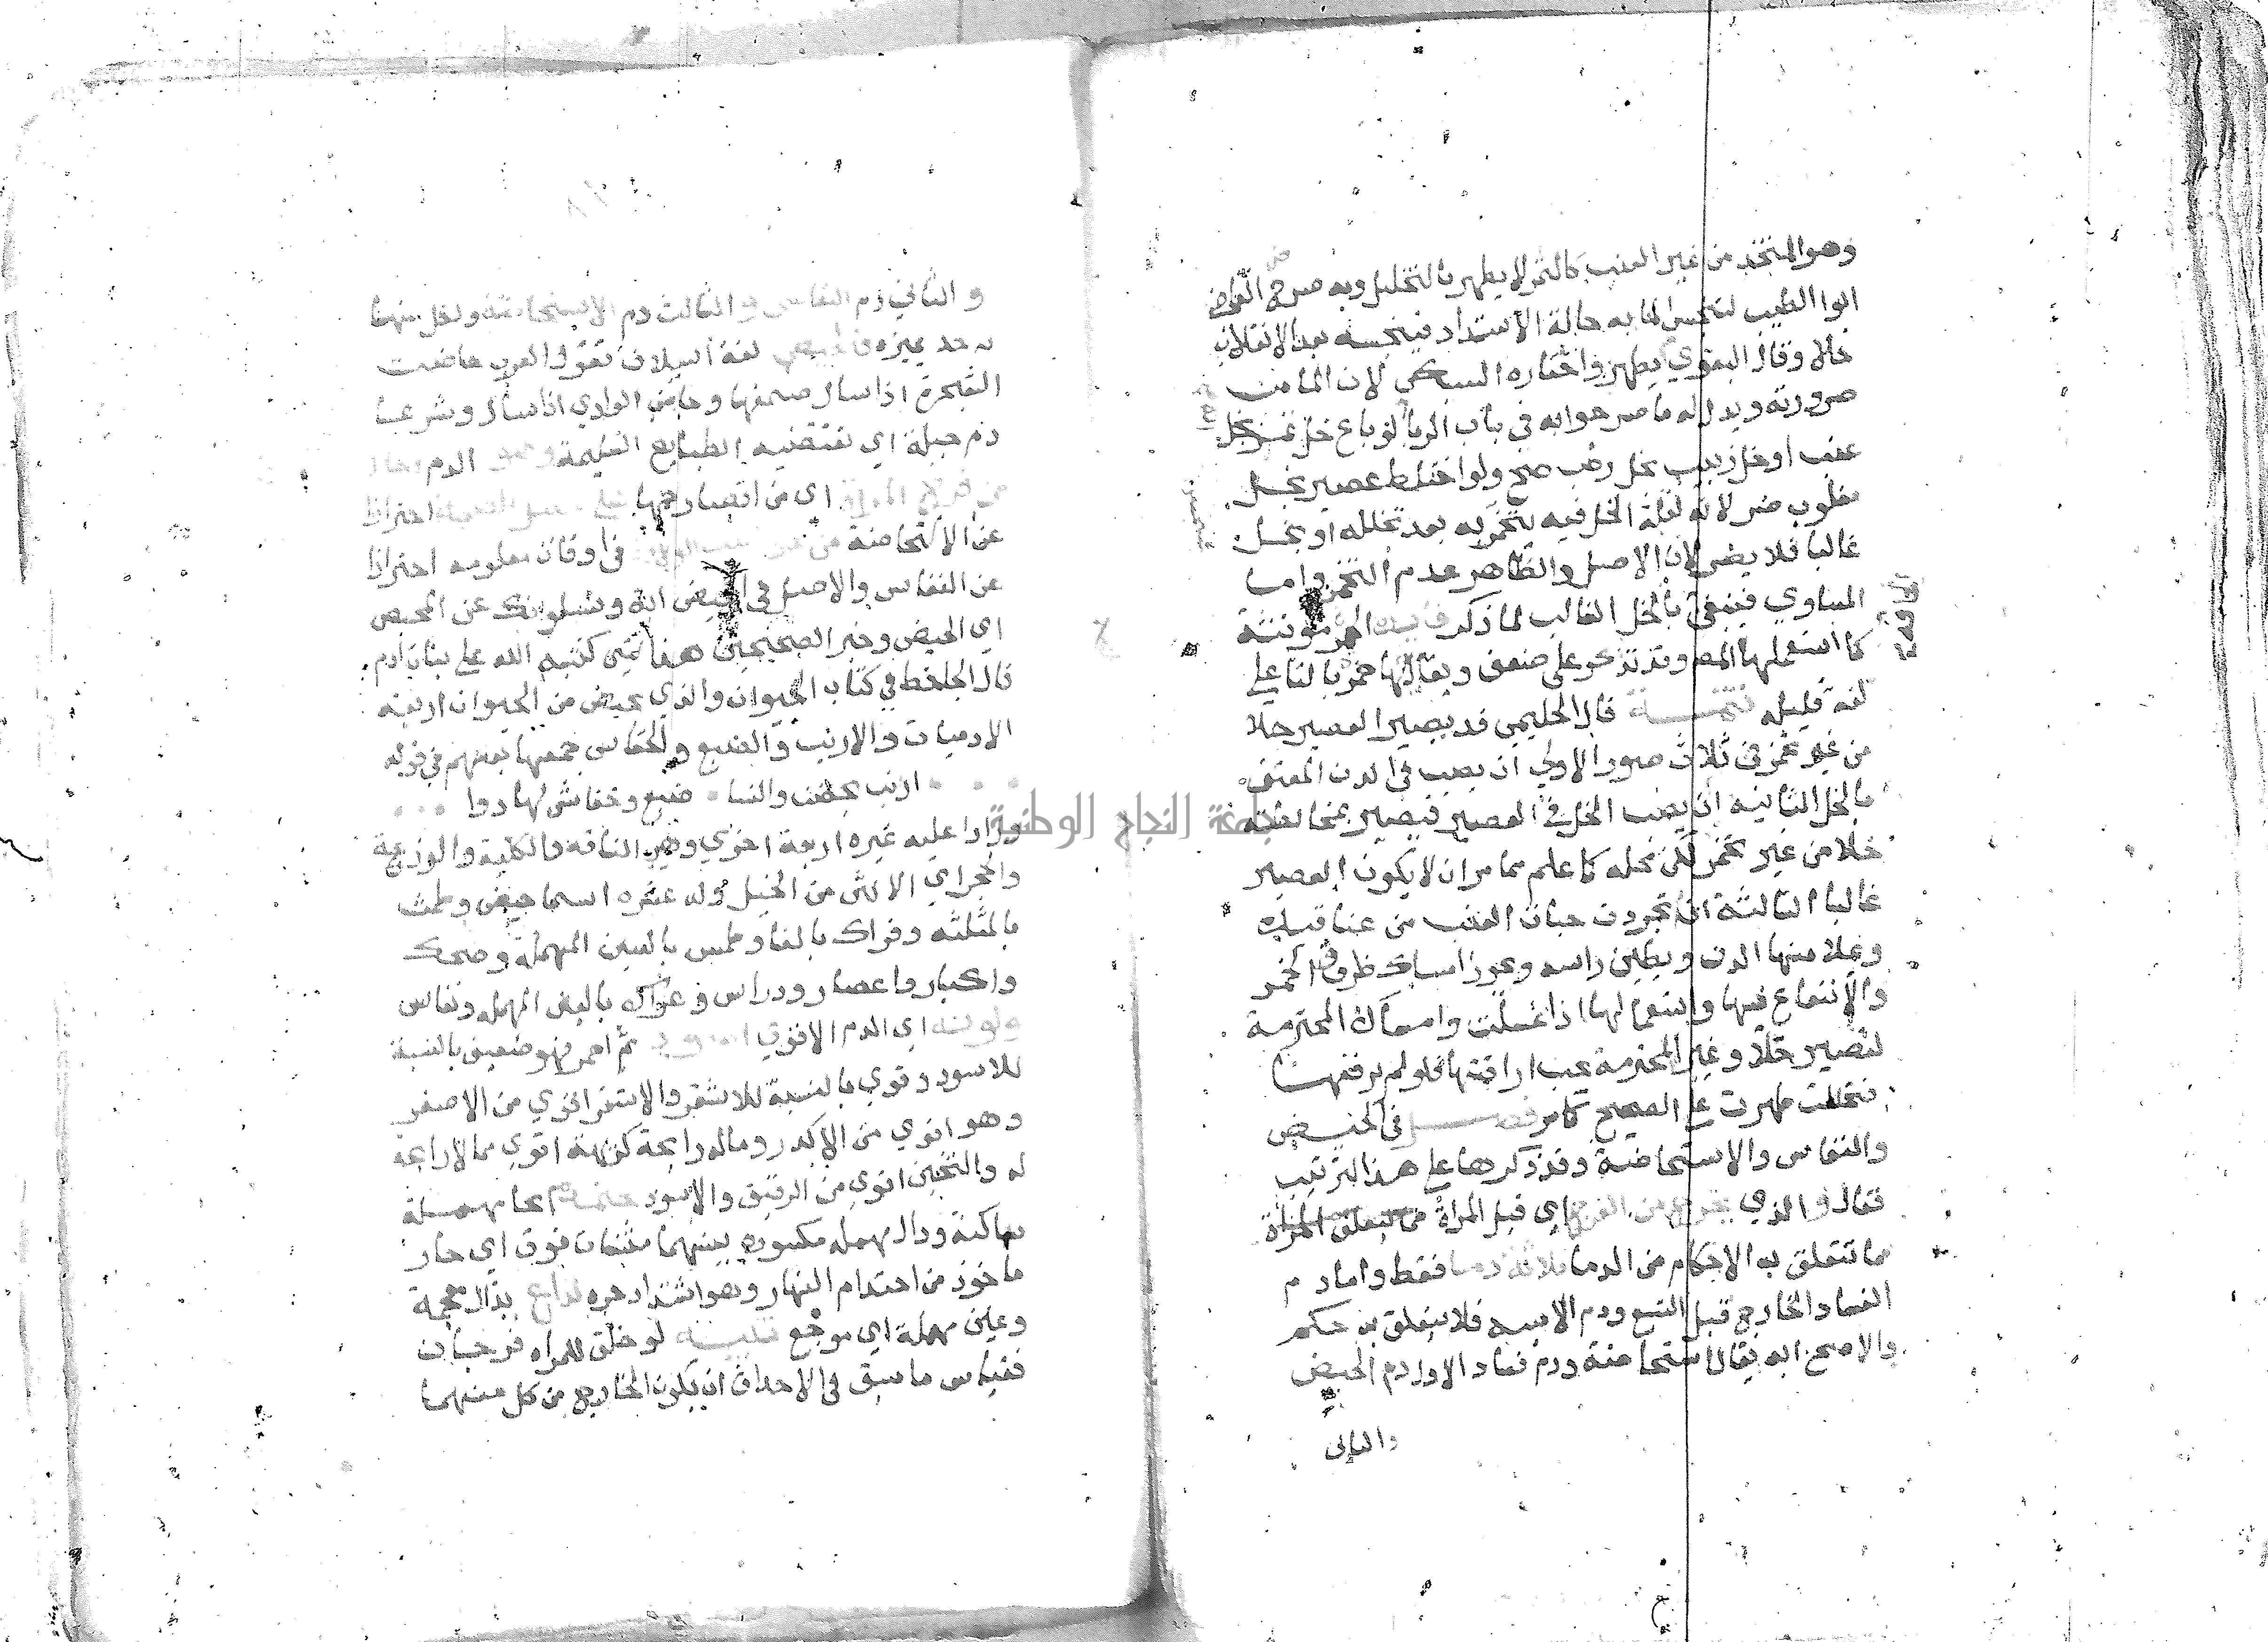 وهو المتخذ من غير العنب كالتمر لا يطهر بالتخليل وبه صرح القاضي
ابوا الطيب لتنجس الما به حالة الاشتداد فينجسه بعد الانقلاب
خلا وقال البغوي يطهر واختاره السبكي لان الما من
ضرورته ويدل له ما صرحوا به في باب الربا لو باع خل تمر بخل
عنب او خل زبيب بخل رطب صح ولو اختلط عصير بخل
مغلوب ضر لانه لقلة الخل فيه يتخمر به بعد تخلله او بخل
غالبا فلا يضر لان الاصل والظاهر عدم التخمر واما
المساوي فينبغي بالخل الغالب لما ذكر فايدة الخمر مونثة
كما استعملها المص وقد تذكر على ضعف ويقال لها خمرة بالتا على
لغة قليله تتمـــة قال الحليمي قد يصير العصير خلا
من غير تخمر في ثلاث صور الاولى ان يصب في الدن المعتق
بالخل الثانيه ان يصب الخل في العصير فيصير بمخالطته
خلا من غير تخمر لكن محله كما علم مما مر ان لا يكون العصير
غالبا الثالثة اذا تجردت حبات العنب من عناقيده
وعلا منها الدن ويطين راسه ويجوز امساك ظروف الخمر
والانتفاع فيها واستعمالها اذا غسلت وامساك المحترمة
لتصير خلا وغير المحترمة يجب اراقتها فلو لم يرقها
فتخللت طهرت على الصحيح كما مر فصـــل في الحيض
والنفاس والاستحاضة وقد ذكرها على هذا الترتيب
فقال والذي يخرج من الفرج اي قبل المراة مما يتعلق المراة
ما تتعلق به الاحكام من الدما ثلاثة دما فقط واما دم
الفساد الخارج قبل التسع ودم الايسة فلا يتعلق به حكم
والاصح انه يقال استحاضة ودم فساد الاول دم الحيض
والثاني
والثاني دم النفاس والثالث دم الاستحاضة ولكل منها
حد يميزه فالحيض لغة السيلان تقول العرب حاضت
الشجرة اذا سال صمغها وحاض الوادي اذا سال وشرعا
دم جبلة اي تقتضيه الطبايع السليمة وهو الدم
اي من اقصا رحمها على احترازا
عن الاستحاضة من في اوقات معلومه احترازا
عن النفاس والاصل في الحيض اية ويسلونك عن المحيض
اي الحيض وخبر الصحيحين هذا شي كتبه الله على بنات ادم
قال الجاحظ في كتاب الحيوان والذي يحيض من الحيوان اربعة
الادميات والارنب والضبع والخفاش جمعها بعضهم في قوله
ارانب يحضن والنسا ضبع وخفاش لها دوا
وزاد عليه غيره اربعة اخري وهي الناقه والكلبة والوزغة
والحجر اي الانثى من الخيل وله عشره اسما حيض وطمث
بالمثلثه وفراك بالفا وطمس بالسين المهملة وضحك
واكبار واعصار ودراس وعراك بالعين المهمله ونفاس
ولونه اي الدم الاقوى اسود ثم احمر فهو ضعيف بالنسبة
للاسود وقوي بالنسبة للاشقر والاشقر اقوي من الاصفر
وهو اقوي من الاكدر وما له رايحة كريهة اقوي مما لا رايحة
له والثخين اقوي من الرقيق والاسود محتدم بحا مهملة
ساكنة ودال مهمله مكسوره بينهما مثناة فوق اي حار
ماخوذ من احتدام النهار وهو اشتداد حره لذاع بذال معجمة
وعين مهملة اي موجع تنبيـــه لو خلق للمراه فرجان
فقياس ما سبق في الاحداث ان يكون الخارج من كل منهما
جامعة النجاح الوطنية